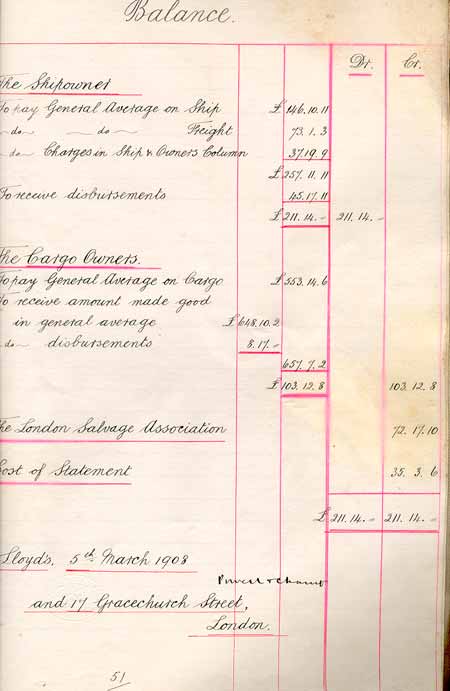 Balance.
Dr. Cr.
The Shipowner
To pay General Average on Ship £ 146.10.11
- do - - do - Freight 73. 1. 3
- do - Charges in Ship & Owners Column 37.19.9
£ 257. 11. 11
To receive disbursements 45.17.11
£ 211. 14. - 211. 14. -
The Cargo Owners.
To pay General Average on Cargo £ 553.14.6
To receive amount made good
in general average £ 648.10.2
- do - disbursements 8.17.-
657. 7. 2
£ 103. 12. 8 103. 12. 8
The London Salvage Association 72. 17. 10
Cost of Statement 35. 3. 6
£ 211. 14. - 211. 14. -
Lloyd's, 5th March 1908
and 17 Gracechurch Street,
London.
51